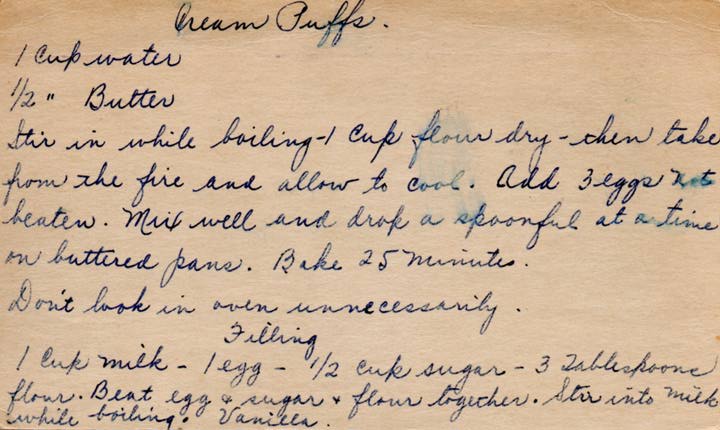 Cream Puffs.
1 Cup water
1/2 " Butter
Stir in while boiling - 1 Cup flour dry - then take
from the fire and allow to cool. Add 3 eggs not
beaten. Mix well and drop a spoonful at a time
on buttered pans. Bake 25 minutes.
Don't look in oven unnecessarily.
Filling
1 Cup milk - 1 egg - 1/2 cup sugar - 3 Tablespoons
flour. Beat egg & sugar & flour together. Stir into milk
while boiling. Vanilla.